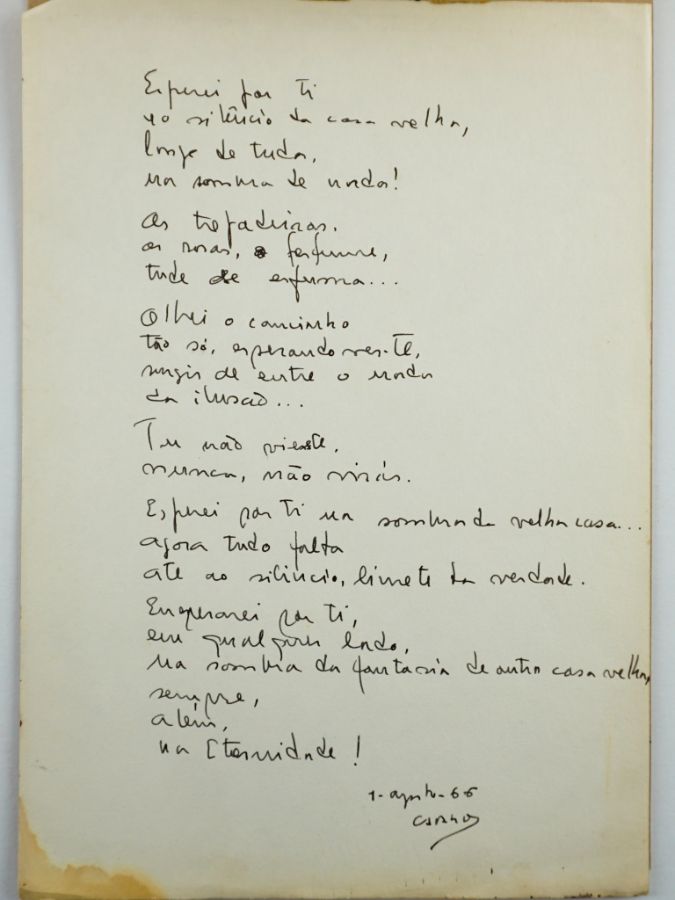 Esperei por ti
no silêncio da casa velha,
longe de tudo,
na sombra de nada!
As trepadeiras,
as rosas, o perfume,
tudo se esfuma...
Olhei o caminho
tão só, esperando ver-te,
surgir de entre o nada
da ilusão...
Tu não vieste,
nunca, não virás.
Esperei por ti na sombra da velha casa...
agora tudo falta
até ao silêncio, limite da verdade.
Esperarei por ti,
em qualquer lado,
na sombra da fantasia de outra casa velha,
sempre,
além,
na Eternidade!
1-agosto-66